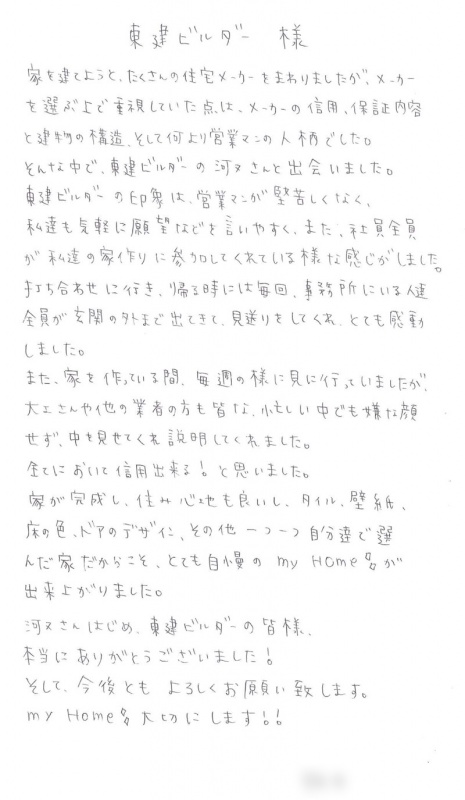 東建ビルダー 様
家を建てようと、たくさんの住宅メーカーをまわりましたが、メーカー
を選ぶ上で重視していた点は、メーカーの信用、保証内容
と建物の構造、そして何より営業マンの人柄でした。
そんな中で、東建ビルダーの河又さんと出会いました。
東建ビルダーの印象は、営業マンが堅苦しくなく、
私達も気軽に願望などを言いやすく、また、社員全員
が私達の家作りに参加してくれている様な感じがしました。
打ち合わせに行き、帰る時には毎回、事務所にいる人達
全員が玄関の外まで出てきて、見送りをしてくれ、とても感動
しました。
また、家を作っている間、毎週の様に見に行っていましたが、
大工さんや他の業者の方も皆な、忙しい中でも嫌な顔
せず、中を見せてくれ説明してくれました。
全てにおいて信用出来る!と思いました。
家が完成し、住み心地も良いし、タイル、壁紙、
床の色、ドアのデザイン、その他一つ一つ自分達で選
んだ家だからこそ、とても自慢の my Homeが
出来上がりました。
河又さんはじめ、東建ビルダーの皆様、
本当にありがとうございました!
そして、今後とも よろしくお願い致します。
my Home大切にします!!